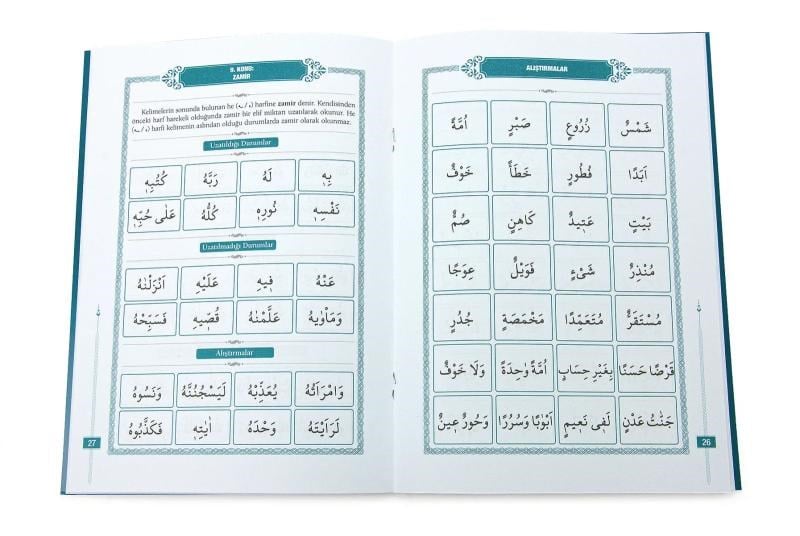 ALIŞTIRMALAR
شَمْسٌ زُرُوعٍ صَبْرٍ اُمَّةً
اَبَدًا فُطُورٍ خَطَأً خَوْفٌ
بَيْتٍ عَتِيدٌ كَاهِنٍ صُمٌّ
مُنْذِرٌ شَىْءٍ فَوَيْلٌ عِوَجًا
مُسْتَقَرٌّ مُتَعَمِّدًا مَخْمَصَةٍ جُدُرٍ
قَرْضًا حَسَنًا بِغَيْرِ حِسَابٍ اُمَّةً وٰحِدَةً وَلَا خَوْفٌ
جَنَّٰتُ عَدْنٍ لَفِى نَعِيمٍ اَبْوٰبًا وَسُرُرًا وَحُورٌ عِينٌ
26
9. KONU:
ZAMİR
Kelimelerin sonunda bulunan he (ه / ـه) harfine zamir denir. Kendisinden
önceki harf harekeli olduğunda zamir bir elif miktarı uzatılarak okunur. He
(ه / ـه) harfi kelimenin aslından olduğu durumlarda zamir olarak okunmaz.
Uzatıldığı Durumlar
بِهٖ لَهُ رَبَّهُ كُتُبِهٖ
نَفْسِهٖ نُورِهٖ كُلُّهُ عَلٰى حُبِّهٖ
Uzatılmadığı Durumlar
عَنْهُ فِيهِ عَلَيْهِ اَنْزَلْنٰهُ
وَمَأْوٰيهُ عَلَّمْنٰهُ قُصّ۪يهِ فَسَبِّحْهُ
Alıştırmalar
وَامْرَاَتُهُ يُعَذِّبْهُ لَيَسْجُنُنَّهُ وَنَسُوهُ
لَرَاَيْتَهُ وَحْدَهُ اٰيٰتِهٖ فَكَذَّبُوهُ
27